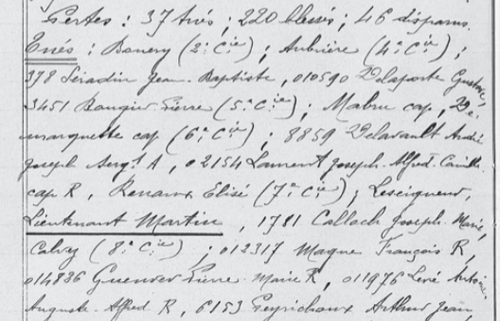 Pertes : 37 tués ; 220 blessés ; 46 disparus.
Tués : Bonery (2e Cie) ; Aubrière (4e Cie) ;
378 Séradin Jean-Baptiste, 010590 Delaporte Gustave,
3451 Bougier Pierre (5e Cie) ; Mabru cap, De-
marquette cap (6e Cie) ; 8859 Delavault André
Joseph Sergt A, 02154 Laurent Joseph-Alfred-Camille
cap R, Renaux Elisé (7e Cie) ; Leseigneur,
Lieutenant Martin, 1781 Calloch Joseph-Marie,
Calvey (8e Cie) ; 012317 Magne François R,
014836 Pierre-Marie R, 011976 Levé Antoine
Auguste-Alfred R, 6153 Peyrichoux Arthur Jean,